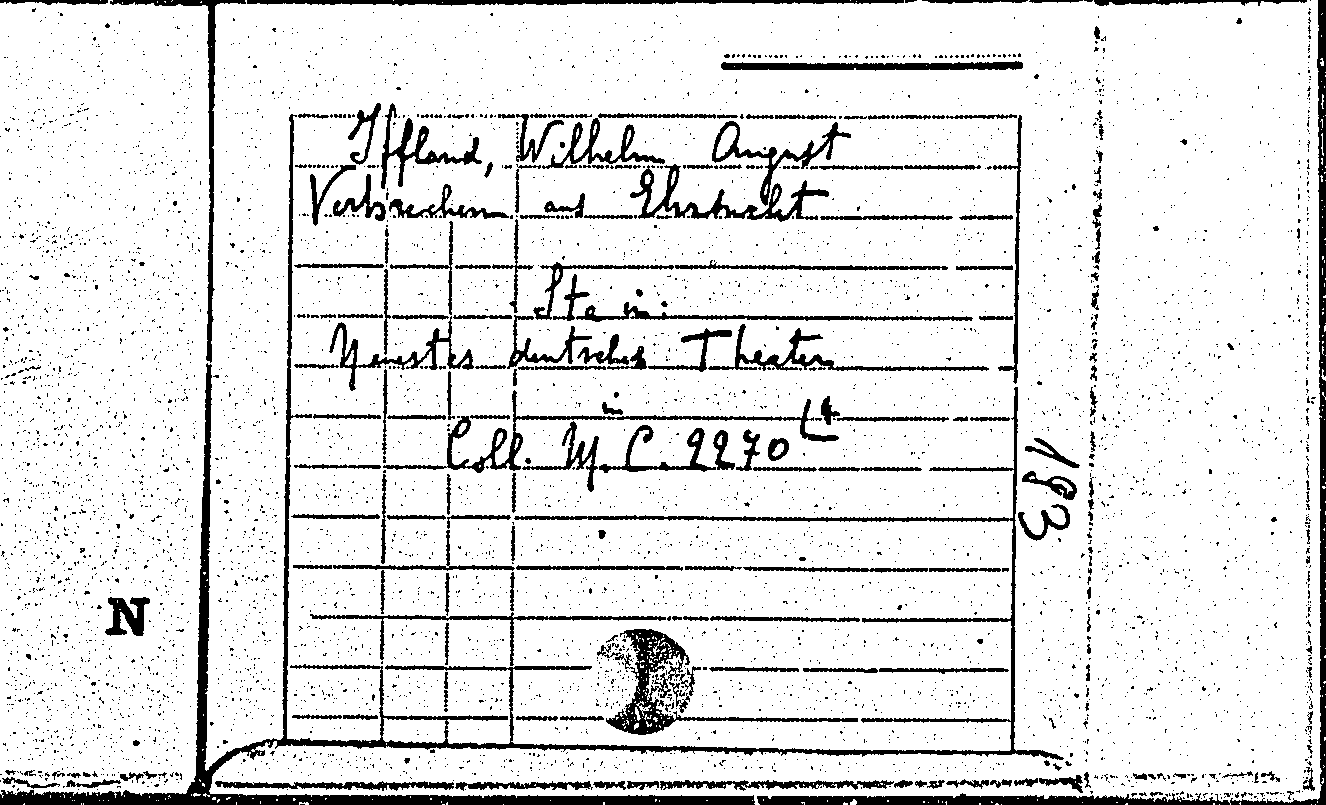 Iffland, Wilhelm August
Verbrechen aus Ehrsucht
Ste in:
Neuestes deutsches Theater
in
Coll. M. C. 2270 L4
193
N